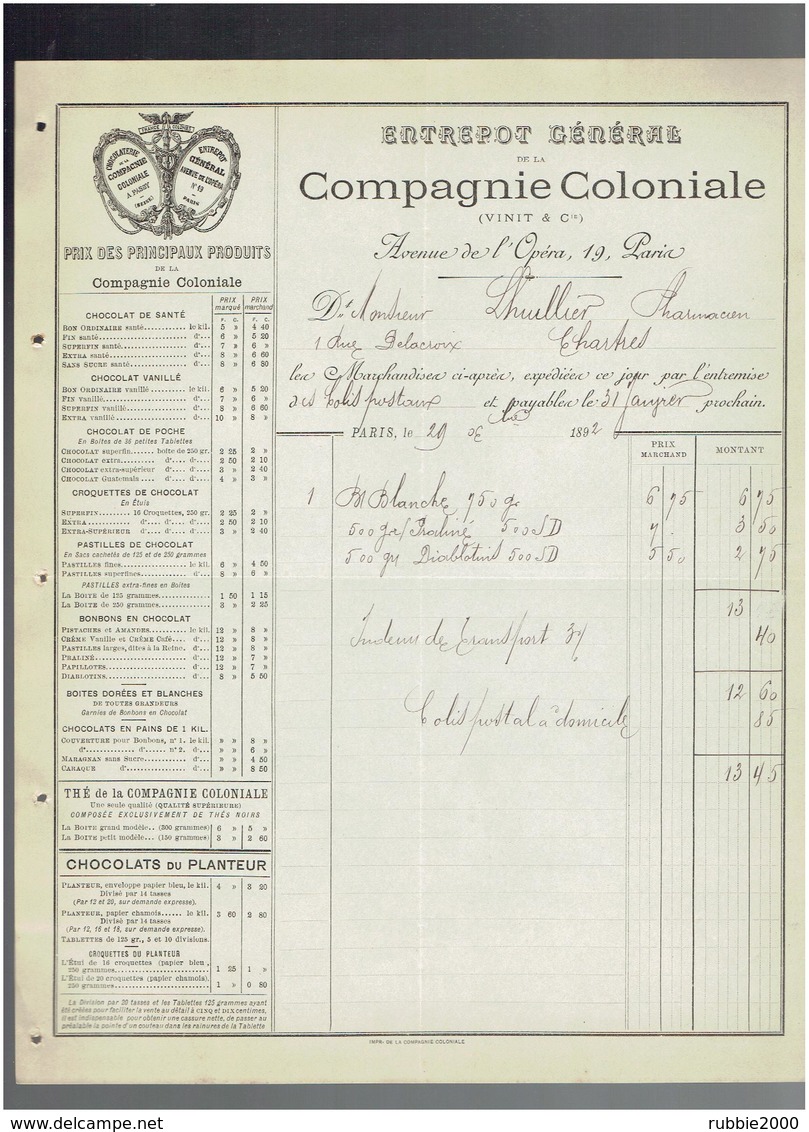 FRANCE & LES COLONIES
CHOCOLATERIE
DE LA
COMPAGNIE
COLONIALE
A PASSY
(SEINE)
ENTREPOT
GÉNÉRAL
AVENUE DE L'OPÉRA
N° 19
PARIS
PRIX DES PRINCIPAUX PRODUITS
DE LA
Compagnie Coloniale
PRIX marqué PRIX marchand
F. C. F. C.
CHOCOLAT DE SANTÉ
BON ORDINAIRE santé.......... le kil. 5 » 4 40
FIN santé.......... d°... 6 » 5 20
SUPERFIN santé.......... d°... 7 » 6 »
EXTRA santé.......... d°... 8 » 6 60
SANS SUCRE santé.......... d°... 8 » 6 80
CHOCOLAT VANILLÉ
BON ORDINAIRE vanillé.......... le kil. 6 » 5 20
FIN vanillé.......... d°... 7 » 6 »
SUPERFIN vanillé.......... d°... 8 » 6 60
EXTRA vanillé.......... d°... 10 » 8 »
CHOCOLAT DE POCHE
En Boîtes de 36 petites Tablettes
CHOCOLAT superfin...... boîte de 250 gr. 2 25 2 »
CHOCOLAT extra.......... d°.... d°.... 2 50 2 10
CHOCOLAT extra-supérieur d°.... d°.... 3 » 2 40
CHOCOLAT Guatemala.... d°.... d°.... 4 » 3 »
CROQUETTES DE CHOCOLAT
En Étuis
SUPERFIN........ 16 Croquettes, 250 gr. 2 25 2 »
EXTRA.......... d°. d°. d°. d°. 2 50 2 10
EXTRA-SUPÉRIEUR d°. d°. d°. d°. 3 » 2 40
PASTILLES DE CHOCOLAT
En Sacs cachetés de 125 et de 250 grammes
PASTILLES fines.......... le kil. 6 » 4 50
PASTILLES superfines.......... d°... 8 » 6 »
PASTILLES extra-fines en Boîtes
LA BOITE de 125 grammes.......... 1 50 1 15
LA BOITE de 250 grammes.......... 3 » 2 25
BONBONS EN CHOCOLAT
PISTACHES et AMANDES.......... le kil. 12 » 8 »
CRÊME Vanille et CRÊME Café.... d°... 12 » 8 »
PASTILLES larges, dites à la Reine. d°... 12 » 8 »
PRALINÉ.......... d°... 12 » 7 »
PAPILLOTES.......... d°... 12 » 7 »
DIABLOTINS.......... d°... 8 » 5 50
BOITES DORÉES ET BLANCHES
DE TOUTES GRANDEURS
Garnies de Bonbons en Chocolat
CHOCOLATS EN PAINS DE 1 KIL.
COUVERTURE pour Bonbons, n° 1. le kil. » » 8 »
d°.......... d°...... n° 2. d°... » » 6 »
MARAGNAN sans Sucre.......... d°... » » 4 50
CARAQUE d°.......... d°... » » 8 50
THÉ de la COMPAGNIE COLONIALE
Une seule qualité (QUALITÉ SUPÉRIEURE)
COMPOSÉE EXCLUSIVEMENT DE THÉS NOIRS
LA BOITE grand modèle.. (300 grammes) 6 » 5 »
LA BOITE petit modèle... (150 grammes) 3 » 2 60
CHOCOLATS DU PLANTEUR
PLANTEUR, enveloppe papier bleu, le kil. 4 » 3 20
Divisé par 14 tasses
(Par 12 et 20, sur demande expresse).
PLANTEUR, papier chamois...... le kil. 3 60 2 80
Divisé par 14 tasses
(Par 12, 16 et 18, sur demande expresse).
TABLETTES DE 125 gr., 5 et 10 divisions.
CROQUETTES DU PLANTEUR
L'ÉTUI de 16 croquettes (papier bleu),
250 grammes.......... 1 25 1 »
L'ÉTUI de 20 croquettes (papier chamois),
250 grammes.......... 1 » 0 80
La Division par 20 tasses et les Tablettes 125 grammes ayant
été créées pour faciliter la vente au détail à CINQ et DIX centimes,
il est indispensable pour obtenir une cassure nette, de passer au
préalable la pointe d'un couteau dans les rainures de la Tablette
ENTREPOT GÉNÉRAL
DE LA
Compagnie Coloniale
(VINIT & Cie)
Avenue de l'Opéra, 19, Paris
Dt Monsieur Lhuillier Pharmacien
1 Rue Delacroix Chartres
les Marchandises ci-après, expédiées ce jour par l'entremise
des Colis postaux et payables le 31 Janvier prochain.
PARIS, le 29 Xbre 1892
PRIX MARCHAND MONTANT
1 Bt Blanche 750 gr 6 75 6 75
500 gr Praliné 500 SD 7 . 3 50
500 gr Diablotins 500 SD 5 50 2 75
13
Indem de Transport 3% 40
12 60
Colis postal à domicile 85
13 45
IMPR. DE LA COMPAGNIE COLONIALE
www.delcampe.net
rubbie2000